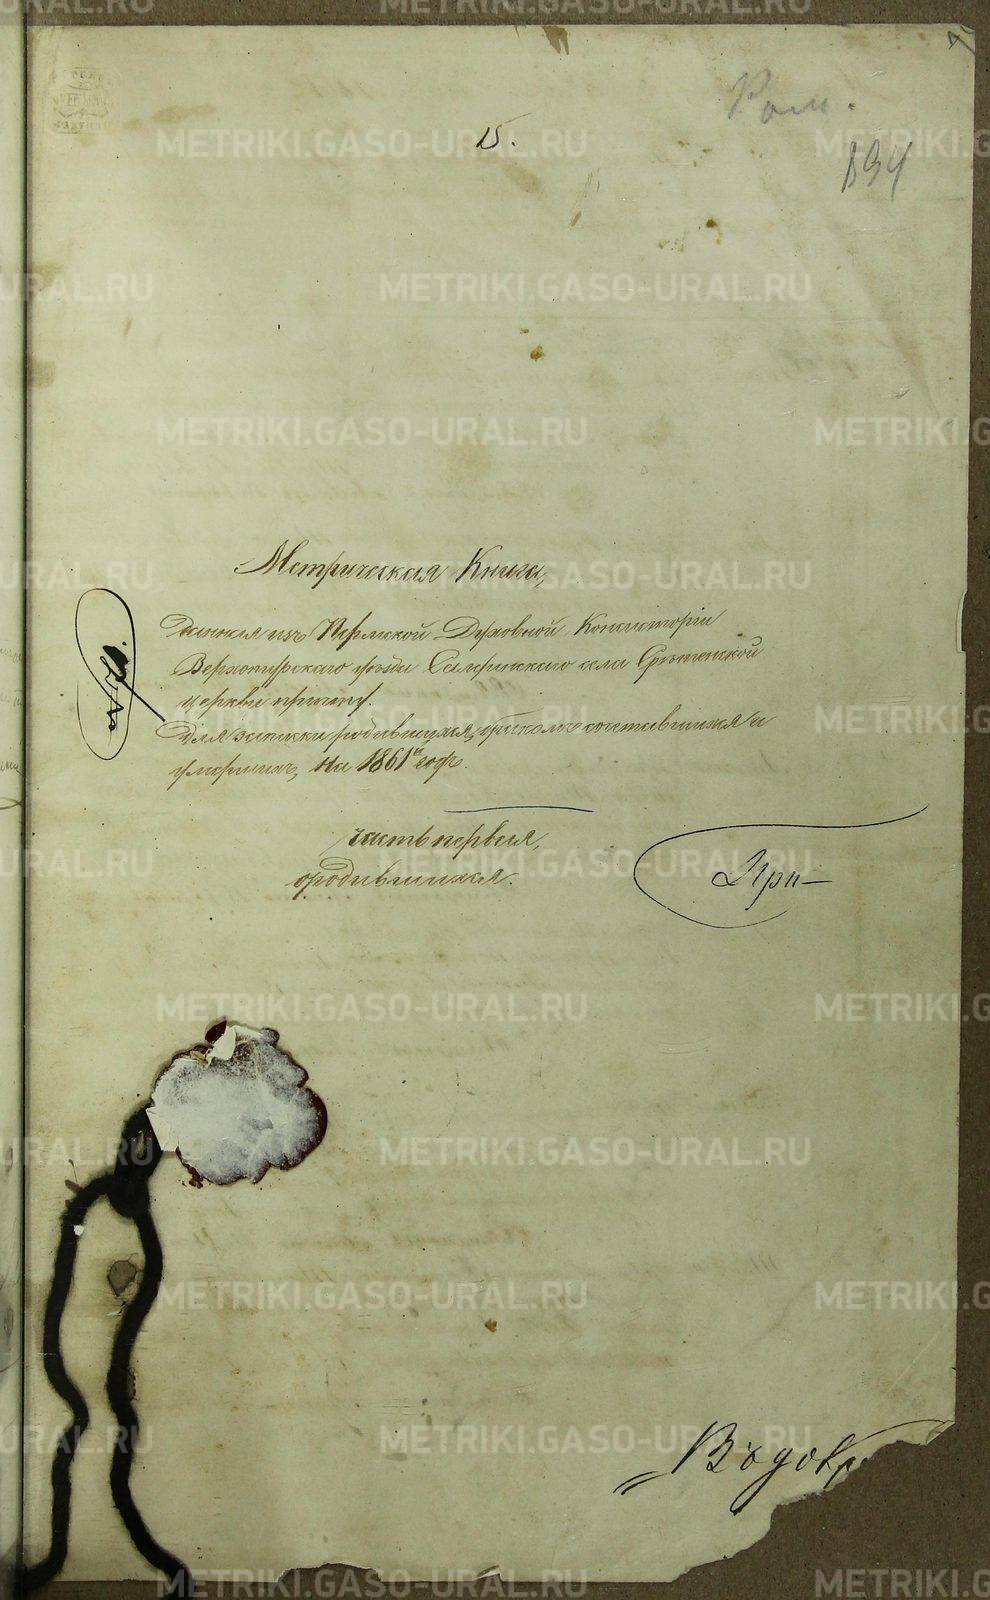 Рож.
15.
194
Метрическая Книга,
Данная изъ Пермской Духовной Консисторіи
Верхотурскаго уѣзда Салдинскаго села Срѣтенской
церкви причту.
Для записки родившихся, бракомъ сочетавшихся и
умершихъ, На 1861й годъ.
часть первая,
о родившихся.
METRIKI.GASO-URAL.RU